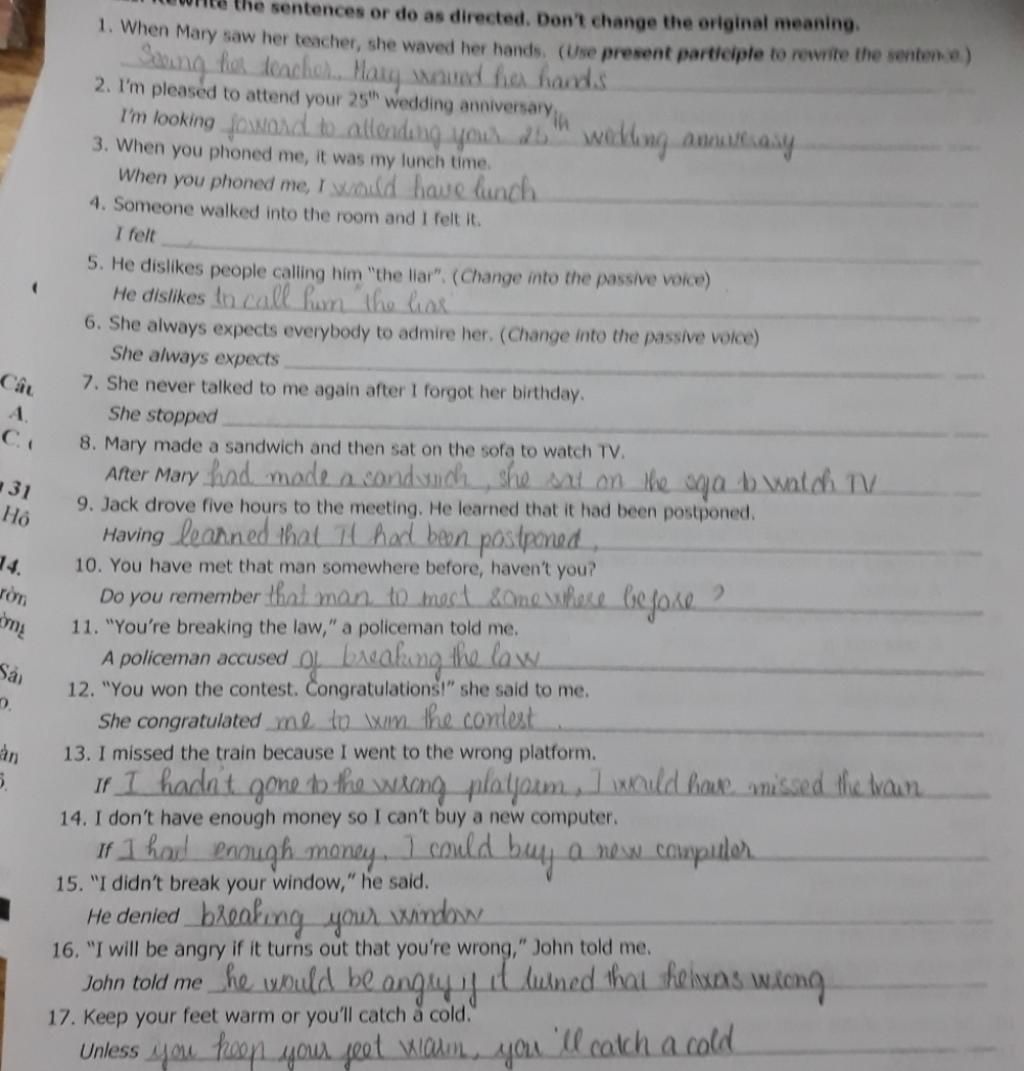 Rewrite the sentences or do as directed. Don't change the original meaning.
1. When Mary saw her teacher, she waved her hands. (Use present participle to rewrite the sentence.)
Seeing her teacher, Mary waved her hands
2. I'm pleased to attend your 25th wedding anniversary.
I'm looking foward to attending your 25th wedding anniversasy
3. When you phoned me, it was my lunch time.
When you phoned me, I would have lunch
4. Someone walked into the room and I felt it.
I felt
5. He dislikes people calling him "the liar". (Change into the passive voice)
He dislikes to call him "the liar"
6. She always expects everybody to admire her. (Change into the passive voice)
She always expects
Câu
7. She never talked to me again after I forgot her birthday.
A.
She stopped
C.
8. Mary made a sandwich and then sat on the sofa to watch TV.
After Mary had made a sandwich, she sat on the sofa to watch TV
131
9. Jack drove five hours to the meeting. He learned that it had been postponed.
Hô
Having learned that it had been postponed,
14.
10. You have met that man somewhere before, haven't you?
Do you remember that man to meet somewhere before?
11. "You're breaking the law," a policeman told me.
A policeman accused of breaking the law
12. "You won the contest. Congratulations!" she said to me.
She congratulated me to win the contest.
13. I missed the train because I went to the wrong platform.
If I hadn't gone to the wrong platform, I would have missed the train
14. I don't have enough money so I can't buy a new computer.
If I had enough money, I could buy a new computer
15. "I didn't break your window," he said.
He denied breaking your window
16. "I will be angry if it turns out that you're wrong," John told me.
John told me he would be angry if it turned that he was wrong
17. Keep your feet warm or you'll catch a cold.
Unless you keep your feet warm, you'll catch a cold